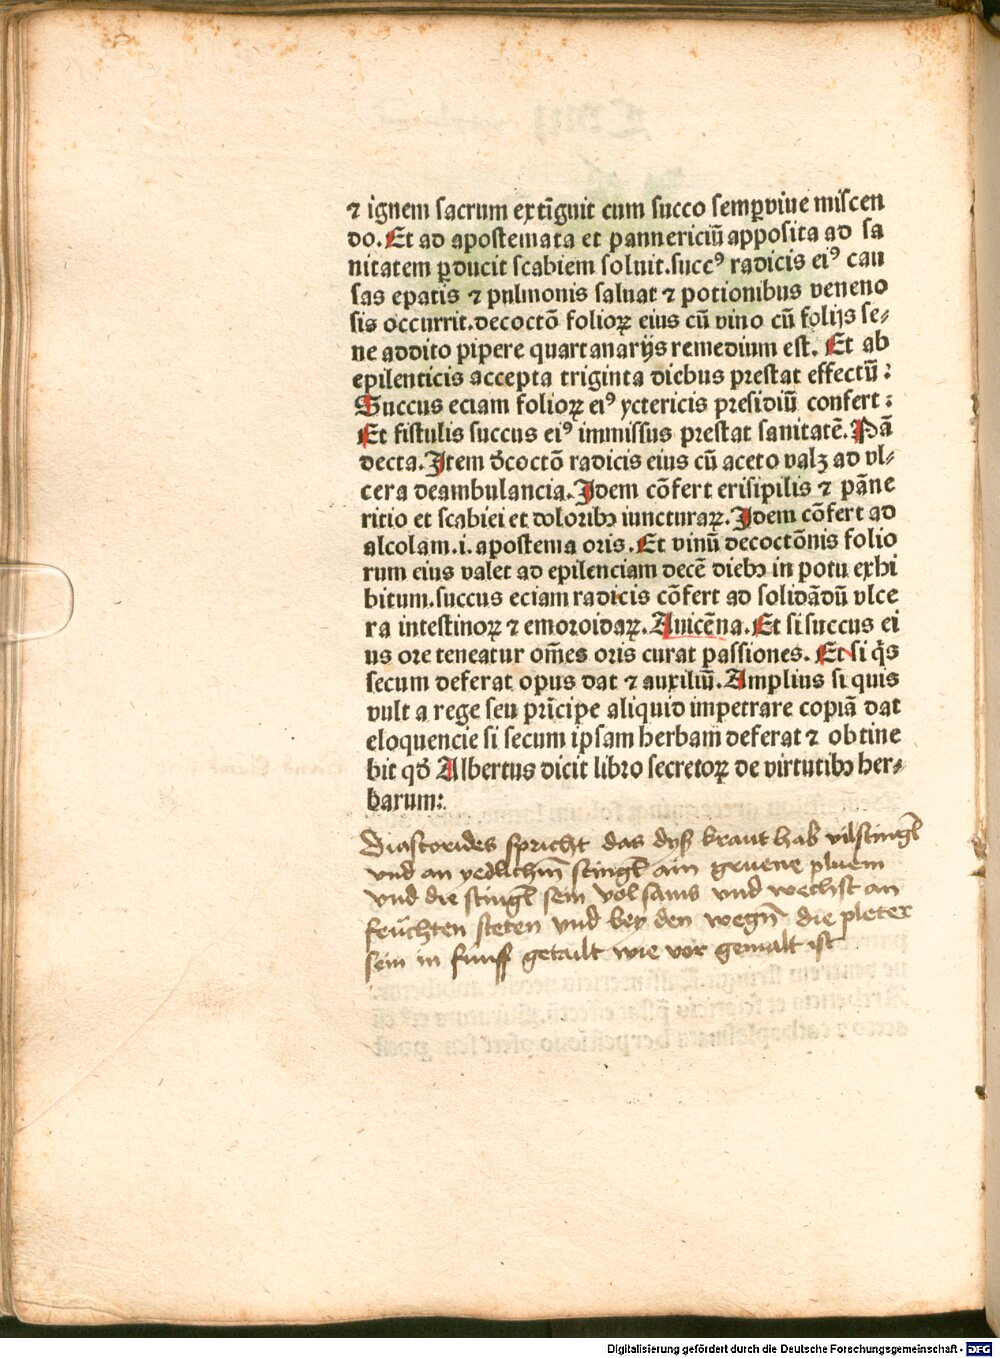 ⁊ ignem sacrum extīguit cum succo semꝑviue miscen
do. Et ad apostemata et pannericiū apposita ad sa
nitatem ꝑducit scabiem soluit. succꝰ radicis eiꝰ cau
sas epatis ⁊ pulmonis saluat ⁊ potionibus veneno
sis occurrit. decoctō folioꝝ eius cū vino cū folijs se⸗
ne addito pipere quartanarijs remedium est. Et ab
epilenticis accepta triginta diebus prestat effectū:
Succus eciam folioꝝ eiꝰ yctericis presidiū confert:
Et fistulis succus eiꝰ immissus prestat sanitatē. Pā
decta. Item dcoctō radicis eius cū aceto valꝫ ad vl⸗
cera deambulancia. Idem cōfert erisipilis ⁊ pāne
ritio et scabiei et doloribꝫ iuncturaꝝ. Idem cōfert ad
alcolam .i. apostema oris. Et vinū decoctōnis folio
rum eius valet ad epilenciam decē diebꝫ in potu exhi
bitum. succus eciam radicis cōfert ad solidādū vlce
ra intestinoꝝ ⁊ emoroidaꝝ. Auicēna. Et si succus ei
us ore teneatur om̄es oris curat passiones. Et si q̄s
secum deferat opus dat ⁊ auxiliū. Amplius si quis
vult a rege seu prīcipe aliquid impetrare copiā dat
eloquencie si secum ipsam herbam deferat ⁊ obtine
bit qđ Albertus dicit libro secretoꝝ de virtutibꝫ her⸗
barum:
Diascorides spricht das dyß kraut hab vil stingl
vnd an yedlichm̄ stingl ain gruene pluem
vnd die stingl sein vol sams vnd wechst an
feuchten steten vnd bey den wegn̄ die pleter
sein in funff getailt wie vor gemalt ist
Digitalisierung gefördert durch die Deutsche Forschungsgemeinschaft - DFG